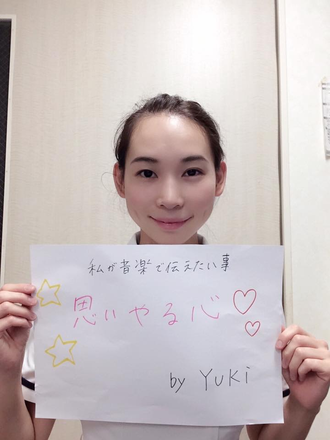 私が音楽で伝えたい事
思いやる心
by YUKi